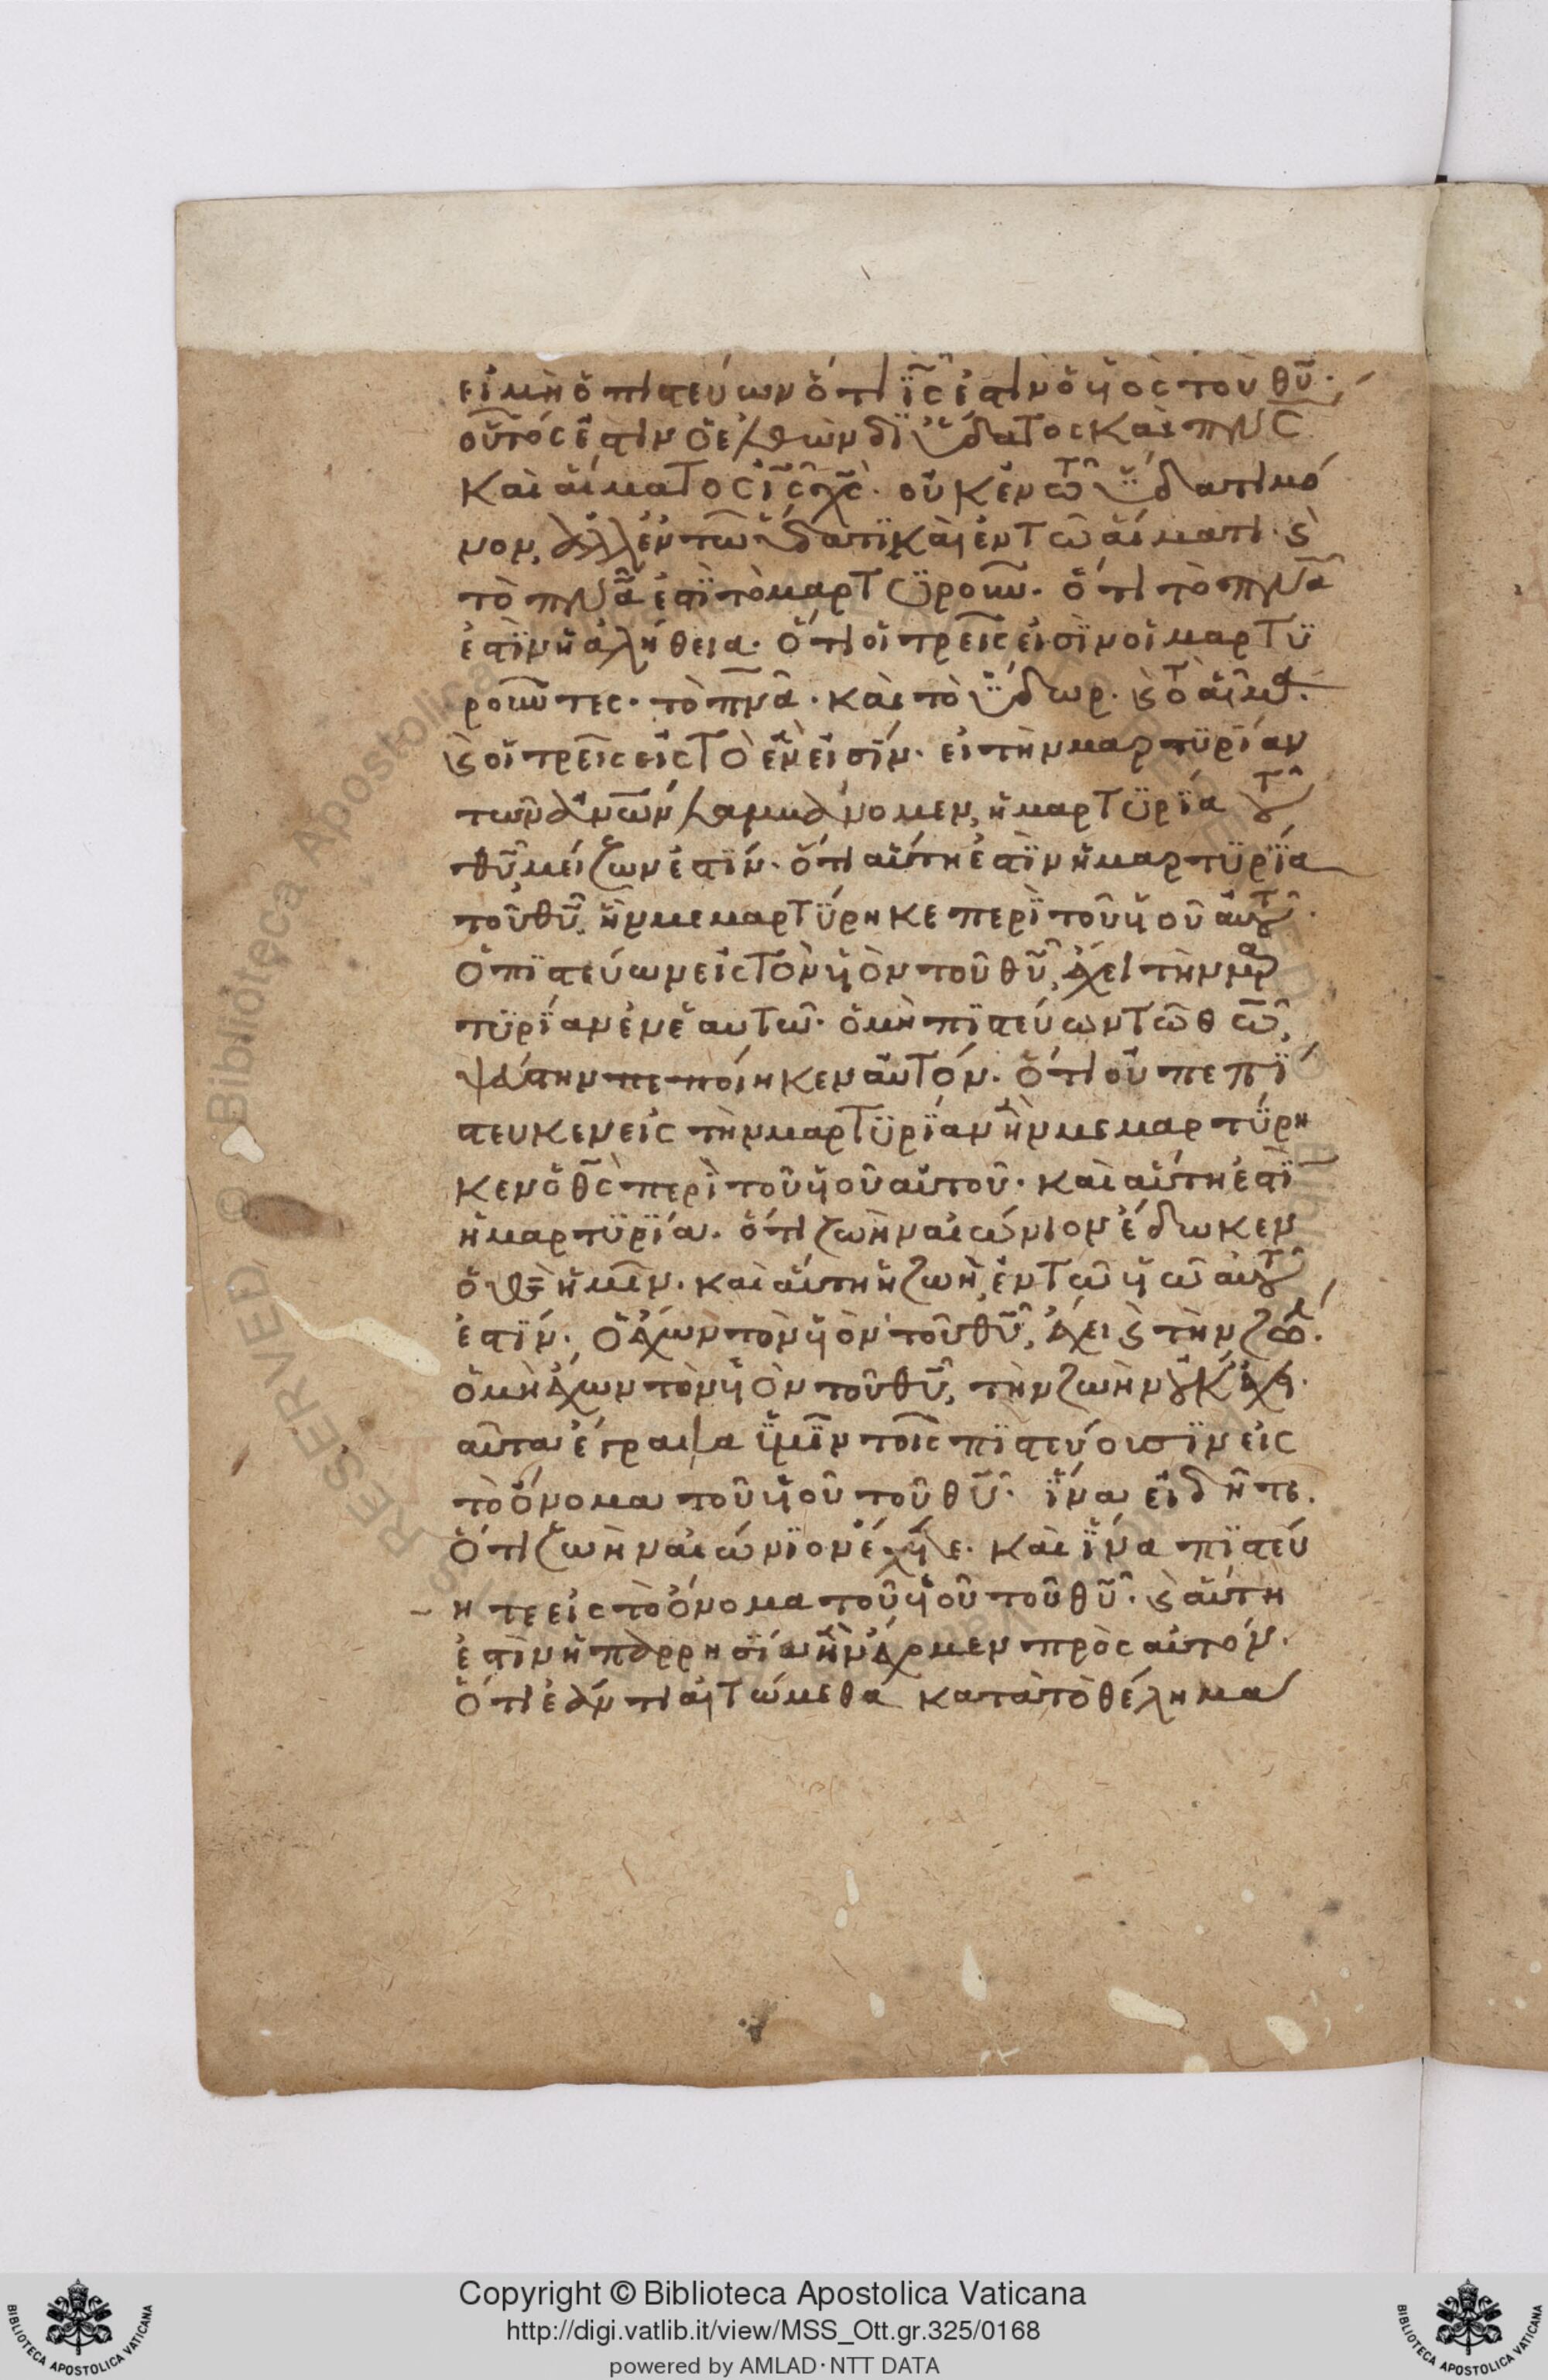 εἰ μὴ ὁ πιστεύων ὅτι ι̅ς̅ ἐστιν ὁ υἱὸς τοῦ θ̅υ̅·
οὗτός ἐστιν ὁ ἐλθὼν δι ὕδατος καὶ π̅ν̅ς̅
καὶ αἵματος ι̅ς̅ χ̅ς̅· οὐκ ἐν τῶ ὕδατι μό
νον, ἀλλ ἐν τῶ ὕδατι καὶ ἐν τῶ αἵματι· ϗ
τὸ π̅ν̅α̅ ἐστὶ τὸ μαρτυροῦν· ὅτι τὸ π̅ν̅α̅
ἐστὶν ἡ ἀλήθεια· ὅτι οἱ τρεῖς εἰσὶν οἱ μαρτυ
ροῦντες· τὸ π̅ν̅α̅· καὶ τὸ ὕδωρ· ϗ τὸ αἷμα·
ϗ οἱ τρεῖς εἰς τὸ ἕν εἰσίν· εἰ τὴν μαρτυρίαν
τῶν ἀ̅ν̅ω̅ν̅ λαμβάνομεν, ἡ μαρτυρία τοῦ
θ̅υ̅ μείζων ἐστίν· ὅτι αὕτη ἐστὶν ἡ μαρτυρία
τοῦ θ̅υ̅, ἣν μεμαρτύρηκε περὶ τοῦ υἱοῦ αὐτοῦ·
ὁ πιστεύων εἰς τὸν υἱὸν τοῦ θ̅υ̅, ἔχει τὴν μαρ
τυρίαν ἐν ἑαυτῶ· ὁ μὴ πιστεύων τῶ θ̅ω̅,
ψεύστην πεποίηκεν αὐτόν· ὅτι οὐ πεπί
στευκεν εἰς τὴν μαρτυρίαν ἣν μεμαρτύρη
κεν ὁ θ̅ς̅ περὶ τοῦ υἱοῦ αὐτοῦ· καὶ αὕτη ἐστὶ
ἡ μαρτυρία· ὅτι ζωὴν αἰώνιον ἔδωκεν
ὁ θ̅ς̅ ἡμῖν· καὶ αὕτη ἡ ζωὴ, ἐν τῶ υἱῶ αὐτοῦ
ἐστίν· ὁ ἔχων τὸν υἱὸν τοῦ θ̅υ̅, ἔχει ϗ τὴν ζωήν·
ὁ μὴ ἔχων τὸν υἱὸν τοῦ θ̅υ̅, τὴν ζωὴν οὐκ ἔχει·
αῦτα ἔγραψα ὑμῖν τοῖς πιστεύουσιν εἰς
τὸ ὄνομα τοῦ υἱοῦ τοῦ θ̅υ̅· ἵνα εἰδῆτε.
ὅτι ζωὴν αἰώνιον ἔχητε· καὶ ἵνα πιστεύ
ητε εἰς τὸ ὄνομα τοῦ υἱοῦ τοῦ θ̅υ̅· ϗ αὕτη
ἐστὶν ἡ παρρησία ἣν ἔχομεν πρὸς αὐτόν·
ὅτι ἐάν τι αἰτώμεθα κατὰ τὸ θέλημα
Copyright © Biblioteca Apostolica Vaticana
http://digi.vatlib.it/view/MSS_Ott.gr.325/0168
powered by AMLAD·NTT DATA
BIBLIOTECA APOSTOLICA VATICANA
BIBLIOTECA APOSTOLICA VATICANA